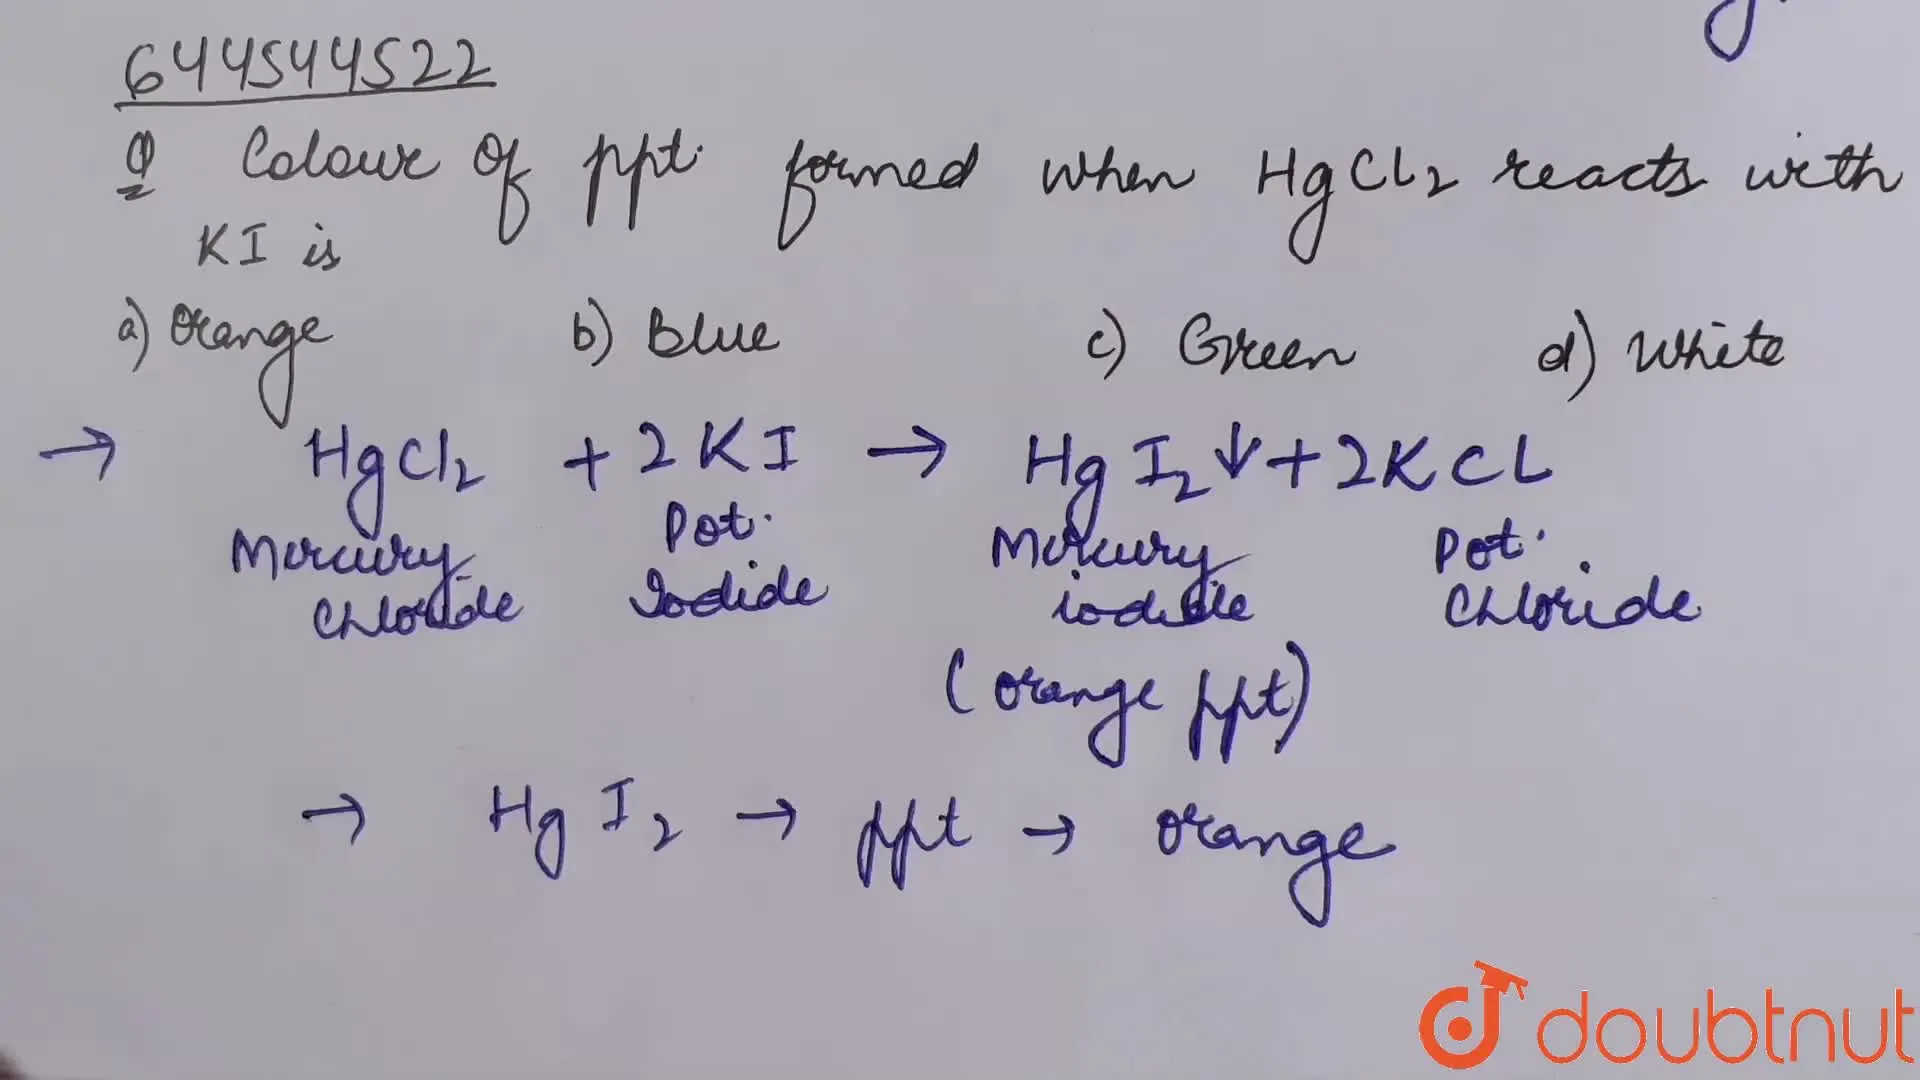 644544522
Q Colour of ppt. formed when HgCl2 reacts with
KI is
a) Orange b) Blue c) Green d) White
→ HgCl2 + 2KI → HgI2↓ + 2KCL
Mercury Chloride Pot. Iodide Mercury iodide Pot. Chloride
(orange ppt)
→ HgI2 → ppt → orange
doubtnut